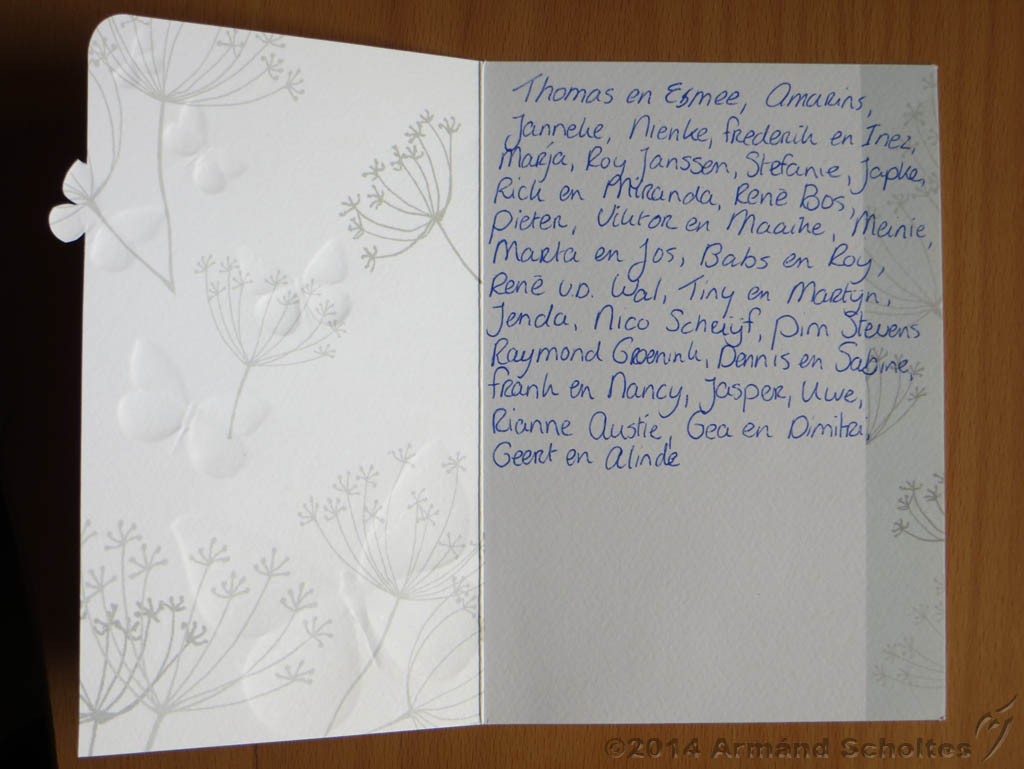 Thomas en Esmee, Amarins,
Janneke, Nienke, frederik en Inez,
Marja, Roy Janssen, Stefanie, Japke,
Rick en Miranda, René Bos,
Pieter, Viktor en Maaike, Meinie,
Marta en Jos, Babs en Roy,
René v.d. Wal, Tiny en Martijn,
Jenda, Nico Scheijf, Pim Stevens
Raymond Groenink, Dennis en Sabine,
frank en Nancy, Jasper, Uwe,
Rianne Austie, Gea en Dimitri,
Geert en Alinde
©2014 Armánd Scholtes